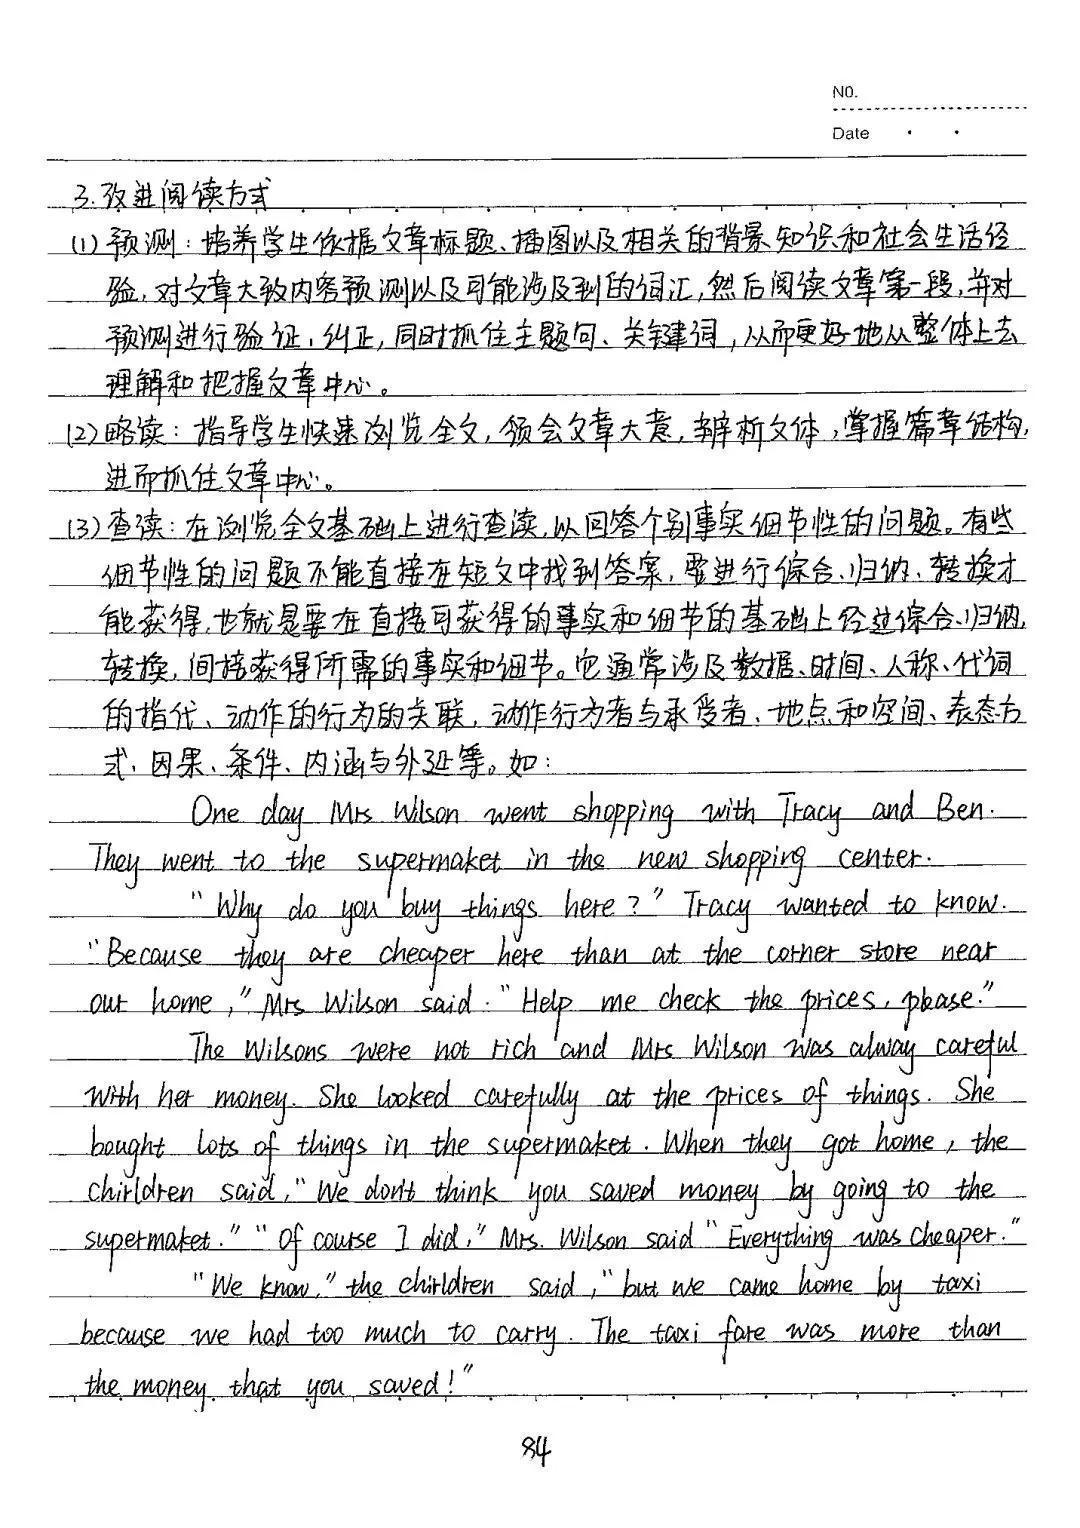 NO.
Date
3. 改进阅读方式
(1) 预测：培养学生依据文章标题、插图以及相关的背景知识和社会生活经
验，对文章大致内容预测以及可能涉及到的词汇，然后阅读文章第一段，并对
预测进行验证，纠正，同时抓住主题句、关键词，从而更好地从整体上去
理解和把握文章中心。
(2) 略读：指导学生快速浏览全文，领会文章大意，辨析文体，掌握篇章结构，
进而抓住文章中心。
(3) 查读：在浏览全文基础上进行查读，以回答个别事实细节性的问题。有些
细节性的问题不能直接在短文中找到答案，要进行综合、归纳、转换才
能获得，也就是要在直接可获得的事实和细节的基础上经过综合、归纳，
转换，间接获得所需的事实和细节。它通常涉及数据、时间、人称、代词
的指代、动作的行为的关联，动作行为者与承受者、地点和空间、表态方
式、因果、条件、内涵与外延等。如：
One day Mrs Wilson went shopping with Tracy and Ben.
They went to the supermaket in the new shopping center.
"Why do you buy things here?" Tracy wanted to know.
"Because they are cheaper here than at the corner store near
our home," Mrs Wilson said. "Help me check the prices, please."
The Wilsons were not rich and Mrs Wilson was alway careful
with her money. She looked carefully at the prices of things. She
bought lots of things in the supermaket. When they got home, the
chirldren said, "We don't think you saved money by going to the
supermaket." "Of course I did," Mrs. Wilson said "Everything was cheaper."
"We know," the chirldren said, "but we came home by taxi
because we had too much to carry. The taxi fare was more than
the money that you saved!"
84